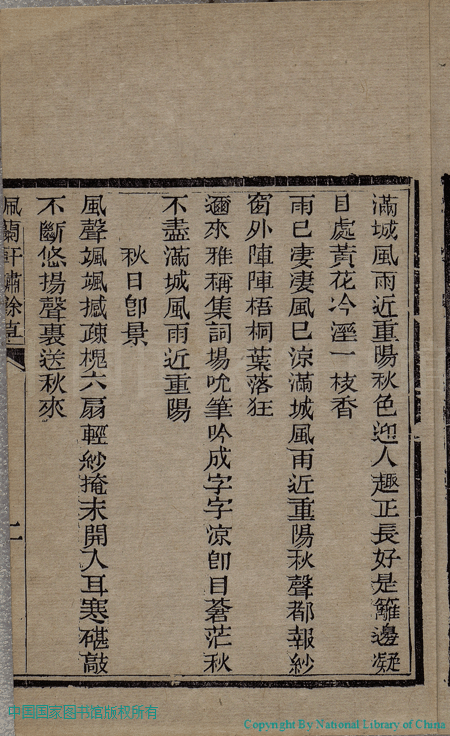 滿城風雨近重陽秋色迎人趣正長好是籬邊凝
目處黃花冷溼一枝香
雨已凄淒風已涼滿城風雨近重陽秋聲都報紗
窗外陣陣梧桐葉落狂
邇來雅稱集詞塲吮筆吟成字字凉卽目蒼茫秋
不盡滿城風雨近重陽
秋日卽景
風聲颯颯撼疎槐六扇輕紗掩未開入耳寒碪敲
不斷悠揚聲裏送秋來
佩蘭軒繡餘草
二
中国国家图书馆版权所有
Copyright By National Library of China